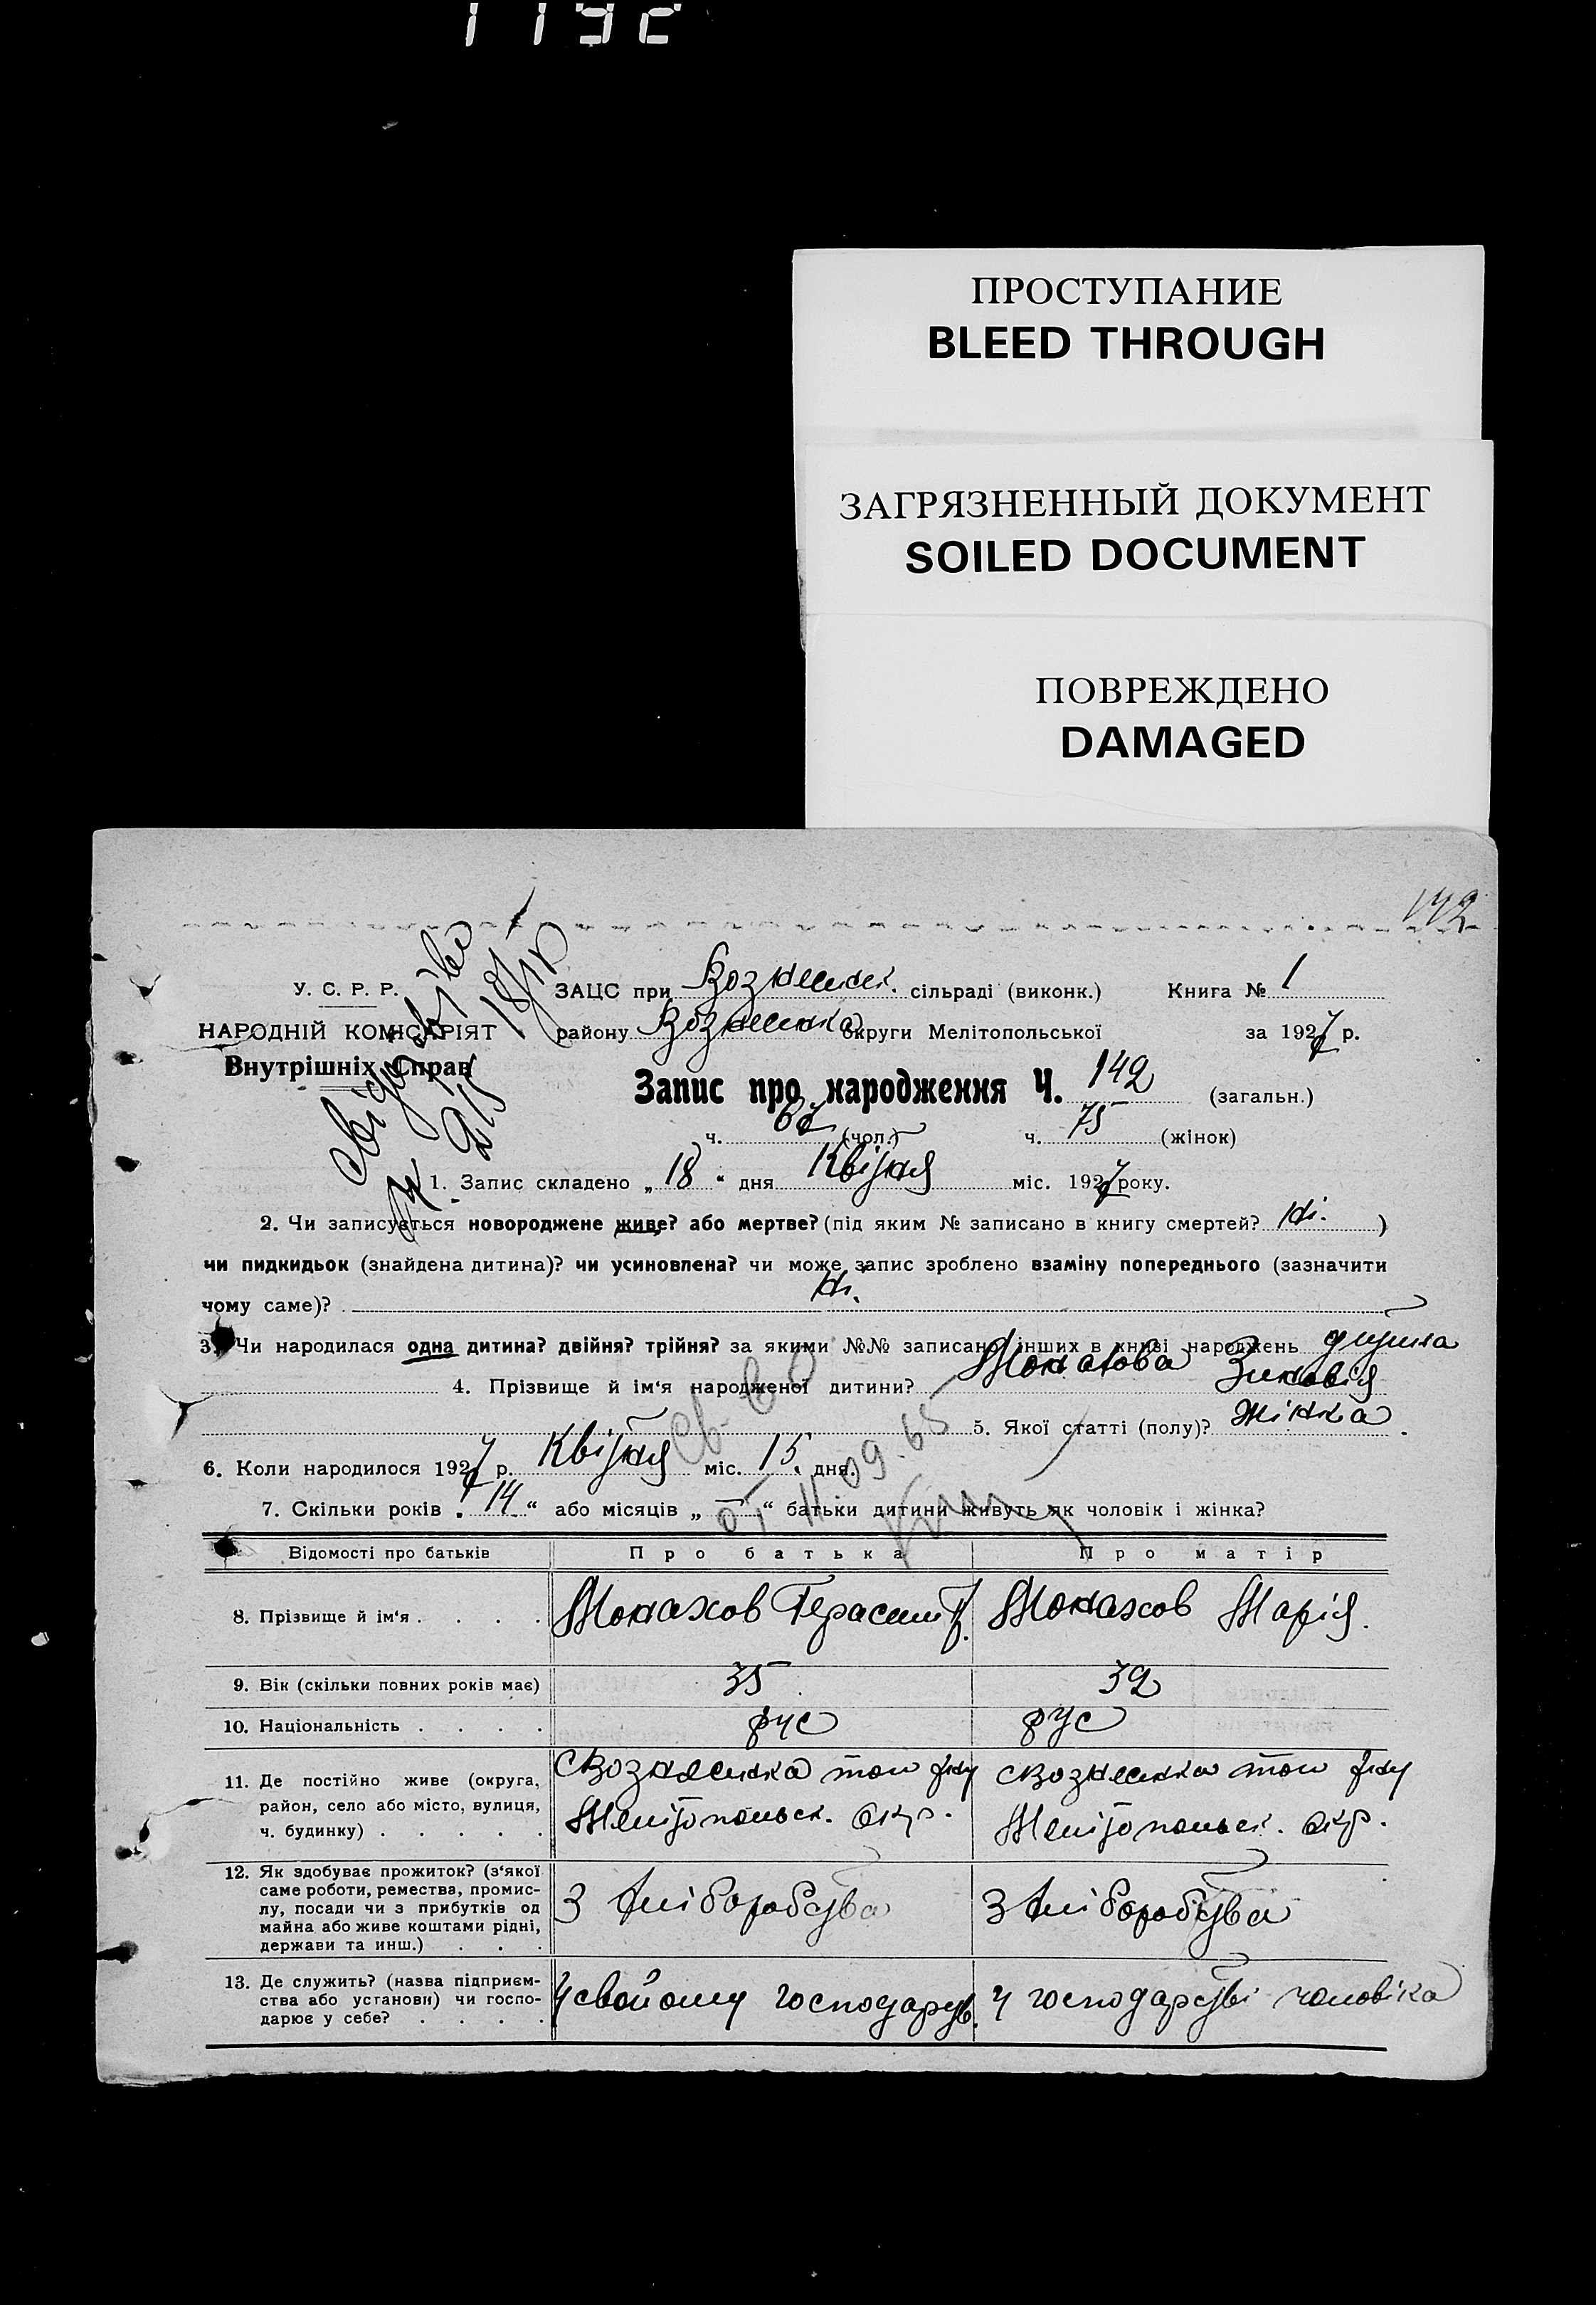 ПРОСТУПАНИЕ
BLEED THROUGH
ЗАГРЯЗНЕННЫЙ ДОКУМЕНТ
SOILED DOCUMENT
ПОВРЕЖДЕНО
DAMAGED
142
У. С. Р. Р.
НАРОДНІЙ КОМІСАРІЯТ
Внутрішніх Справ
ЗАЦС при Вознесенк. сільраді (виконк.) Книга № 1
району Вознесенка округи Мелітопольської за 1927 р.
Запис про народження Ч. 142 (загальн.)
ч. (чол.) ч. 75 (жінок)
1. Запис складено „ 18 “ дня Квітня міс. 1927 року.
2. Чи записується новороджене живе? або мертве? (під яким № записано в книгу смертей? Ні. )
чи пидкидьок (знайдена дитина)? чи усиновлена? чи може запис зроблено взаміну попереднього (зазначити
чому саме)? Ні.
3. Чи народилася одна дитина? двійня? трійня? за якими №№ записано інших в книзі народжень дитина
4. Прізвище й ім‘я народженої дитини? Монахова Зиновія
5. Якої статті (полу)? Жінка.
6. Коли народилося 1927 р. Квітня міс. 15. дня.
7. Скільки років „ 14 “ або місяців „ — “ батьки дитини живуть як чоловік і жінка?
от 11.09.65
Відомості про батьків Про батька Про матір
8. Прізвище й ім‘я . . . . Монахов Герасим Монахов Марія.
9. Вік (скільки повних років має) 35 32
10. Національність . . . . рус рус
11. Де постійно живе (округа,
район, село або місто, вулиця,
ч. будинку) . . . . .
с Вознесенка того р-ну
Мелітопольск. окр.
с Вознесенка того р-ну
Мелітопольск. окр.
12. Як здобуває прожиток? (з‘якої
саме роботи, ремества, промис-
лу, посади чи з прибутків од
майна або живе коштами рідні,
держави та инш.) . . .
З хліборобства З хліборобства
13. Де служить? (назва підприєм-
ства або установи) чи госпо-
дарює у себе? . . . .
У свойому господарств. У господарстві чоловіка